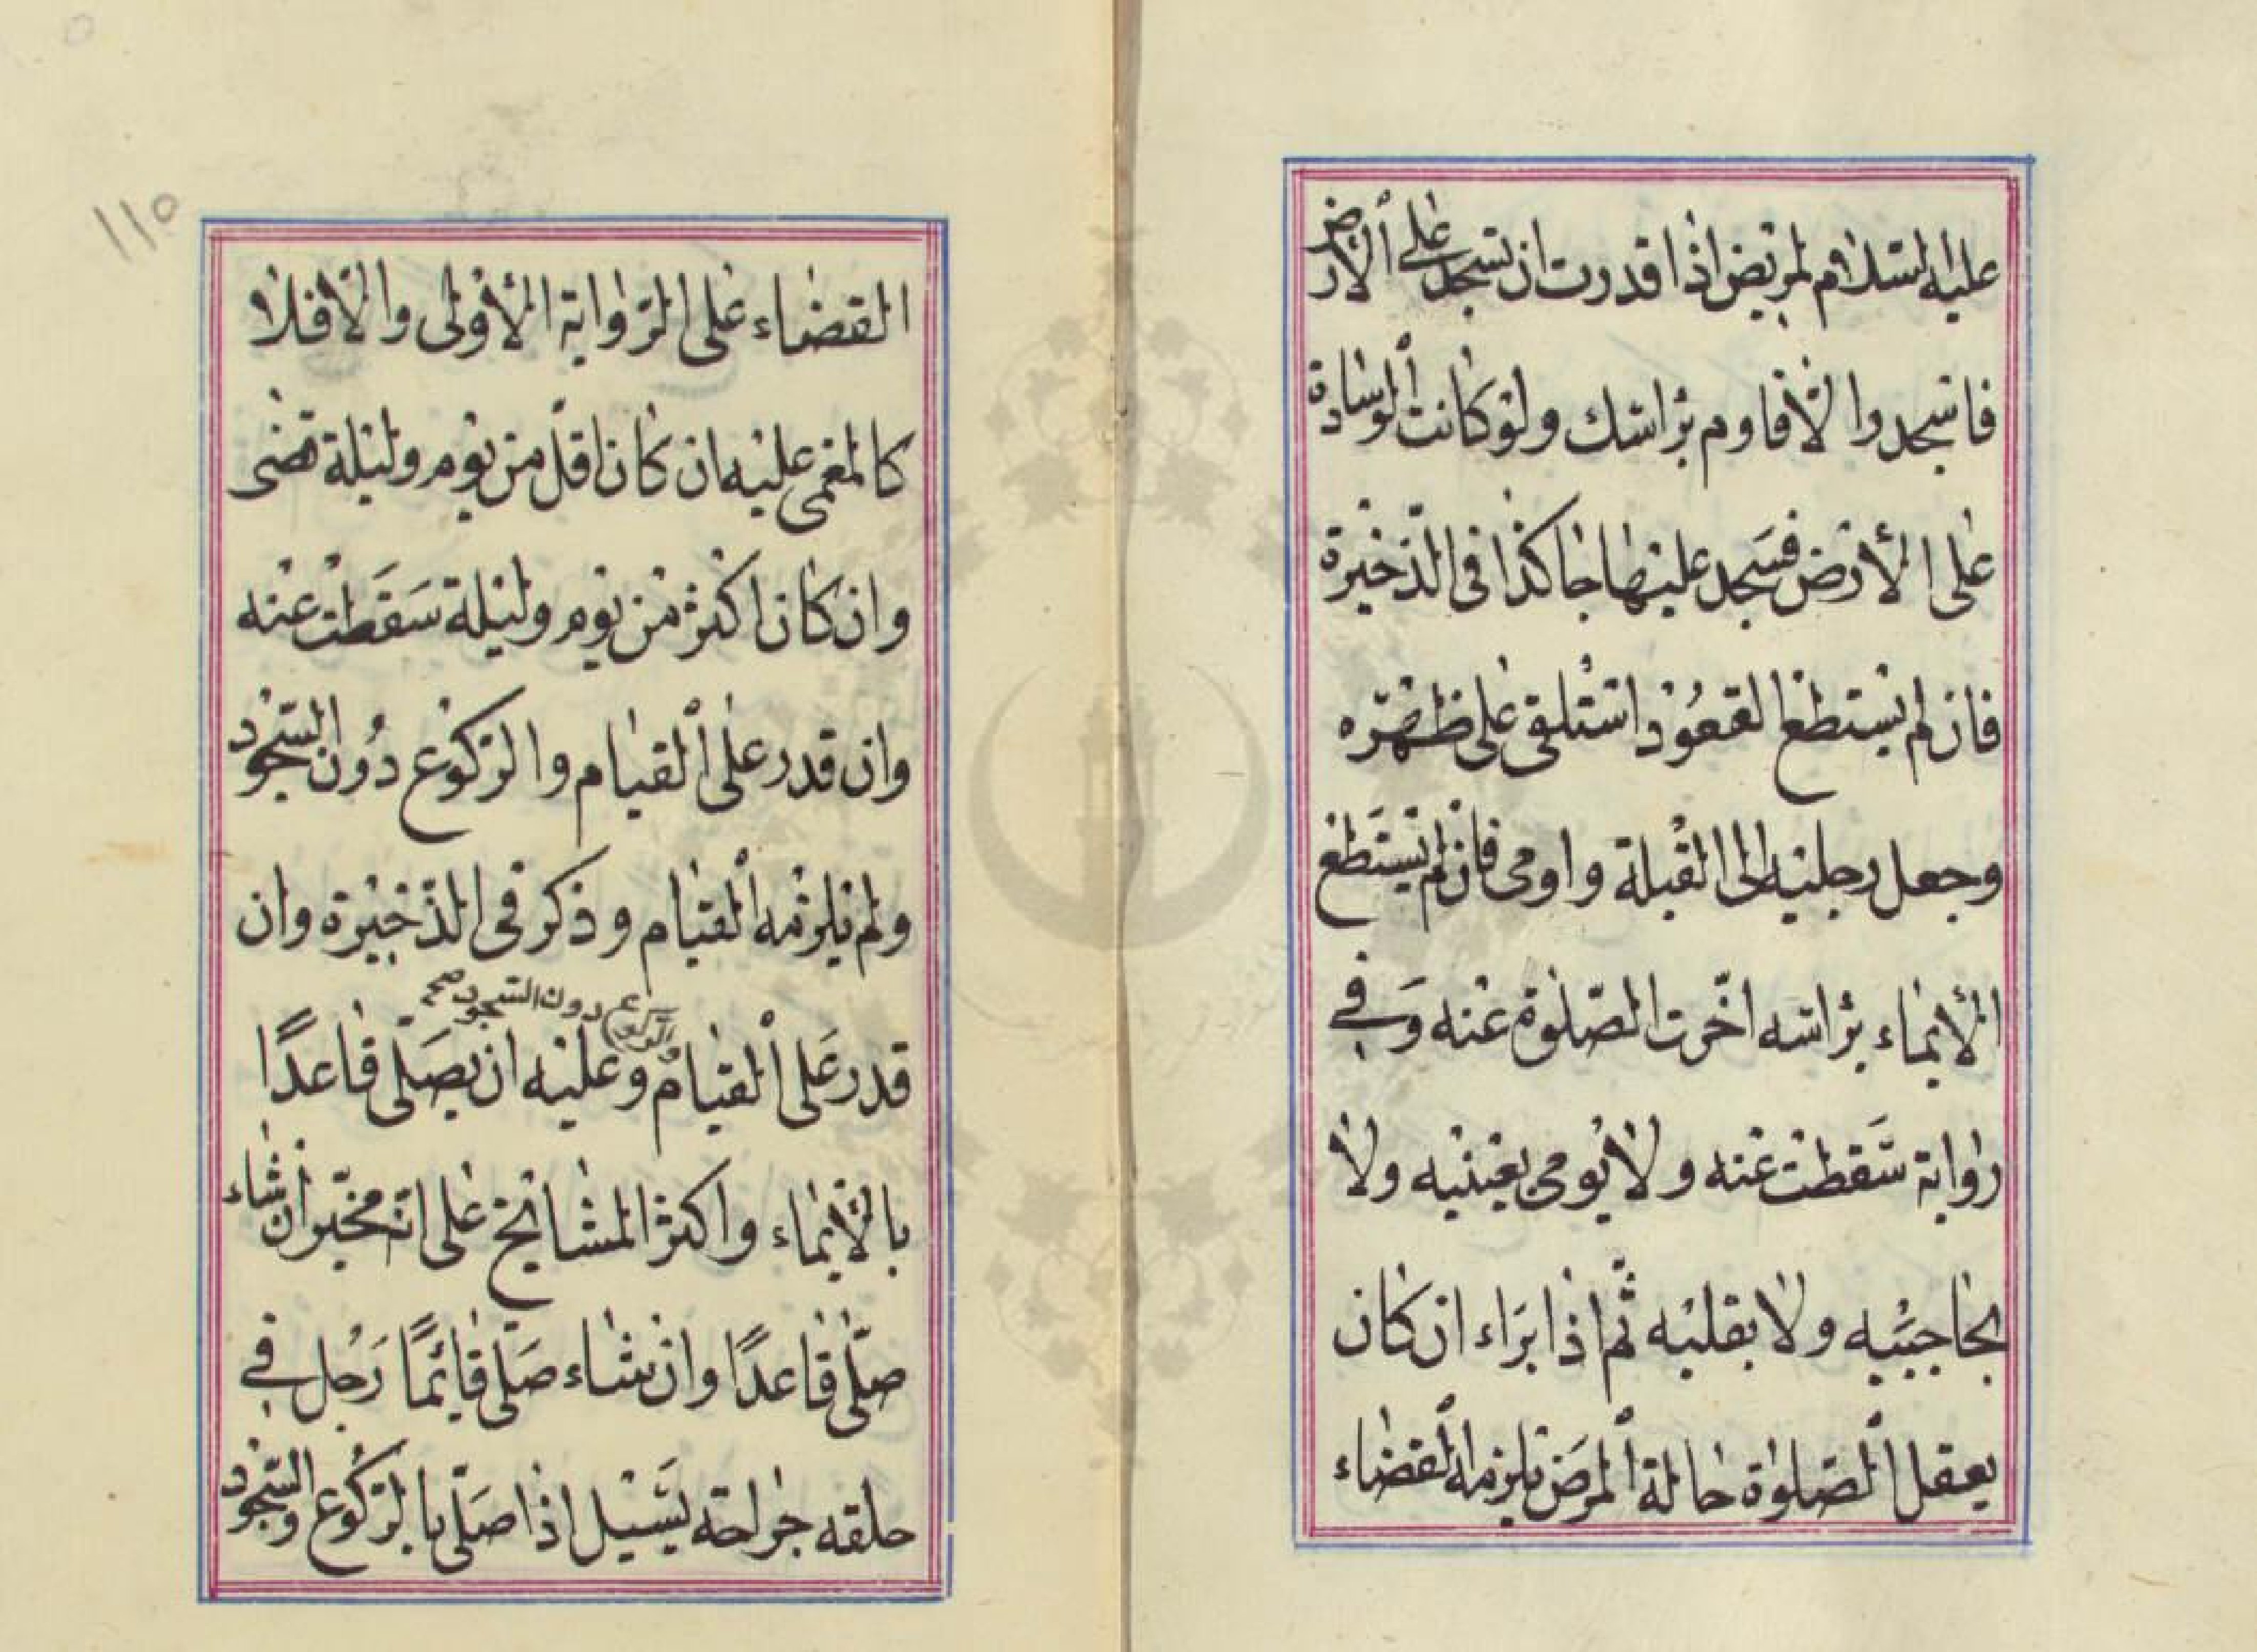 عليه السلام لمريض اذا قدرت ان تسجد على الأرض
فاسجد والّا فاوم برأسك ولو كانت الوسادة
على الأرض فسَجد عليها جاز كذا فى الذّخيرة
فان لم يستطع القعُود استلقى على ظهره
وجعل رجليه الى القبلة واومى فان لم يستَطع
الأيماء برأسه اخّرت الصّلوة عنه وَفي
رواية سَقطت عنه ولا يومى بعينيه ولا
بحاجبيه ولا بقلبه ثمّ اذا برَاء ان كان
يعقل الصّلوٰة حالة المرَض يلزمه القضاء
١١٥
القضاء على الرّواية الأولى والّا فلا
كالمغمى عليه ان كان اقلّ من يوم وليلة قضى
وان كان اكثر من يوم وليلة سَقَطتْ عنه
وان قدر على القيام والركوع دُون السّجود
ولم يلزمه القيام وذكر فى الذّخيرة وان
والركوع دون السّجود صح
قدر عَلى القيام وعليه ان يصَلّى قاعدًا
بالأيماء واكثر المشايخ على انّه مخيّر ان شاء
صلّى قاعدًا وان شاء صَلّى قائمًا رَجُل في
حلقه جراحة يَسيل اذا صَلّى بالرّكُوع والسّجود